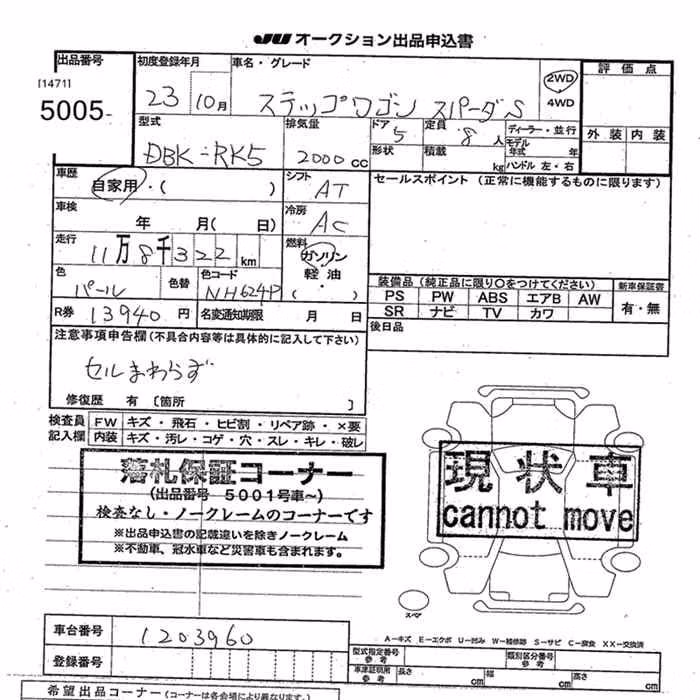 JU オークション出品申込書
出品番号
[1471]
5005-
初度登録年月
23 10月
車名・グレード
ステップワゴン スパーダS
2WD
4WD
評価点
外装 内装
型式
DBK-RK5
排気量
2000cc
ドア
5
形状
定員
8人
積載
kg
ディーラー・並行
モデル年式 年
ハンドル 左・右
車歴
自家用・( )
シフト
AT
セールスポイント (正常に機能するものに限ります)
車検
年 月( 日)
冷房
AC
走行
11万8千322km
燃料
ガソリン
軽油・
( )
色
パール
色替
色コード
NH624P
装備品 (純正品に限り○をつけてください)
新車保証書
PS PW ABS エアB AW
有・無
SR ナビ TV カワ
R券 13940円
名変通知期限 月 日
後日品
注意事項申告欄(不具合内容等は具体的に記入して下さい)
セルまわらず
修復歴 有〔箇所 〕
検査員記入欄
FW キズ・飛石・ヒビ割・リペア跡・×要
内装 キズ・汚レ・コゲ・穴・スレ・キレ・破レ
落札保証コーナー
(出品番号 5001号車~)
検査なし・ノークレームのコーナーです
※出品申込書の記載違いを除きノークレーム
※不動車、冠水車など災害車も含まれます。
現状車
cannot move
スペア
A-キズ E-エクボ U-凹み W-補修跡 S-サビ C-腐食 XX-交換済
車台番号
1203960
登録番号
型式指定番号
参考
類別区分番号
参考
車庫証明用
参考
長さ cm
幅 cm
高さ cm
希望出品コーナー (コーナーは各会場により異なります。)